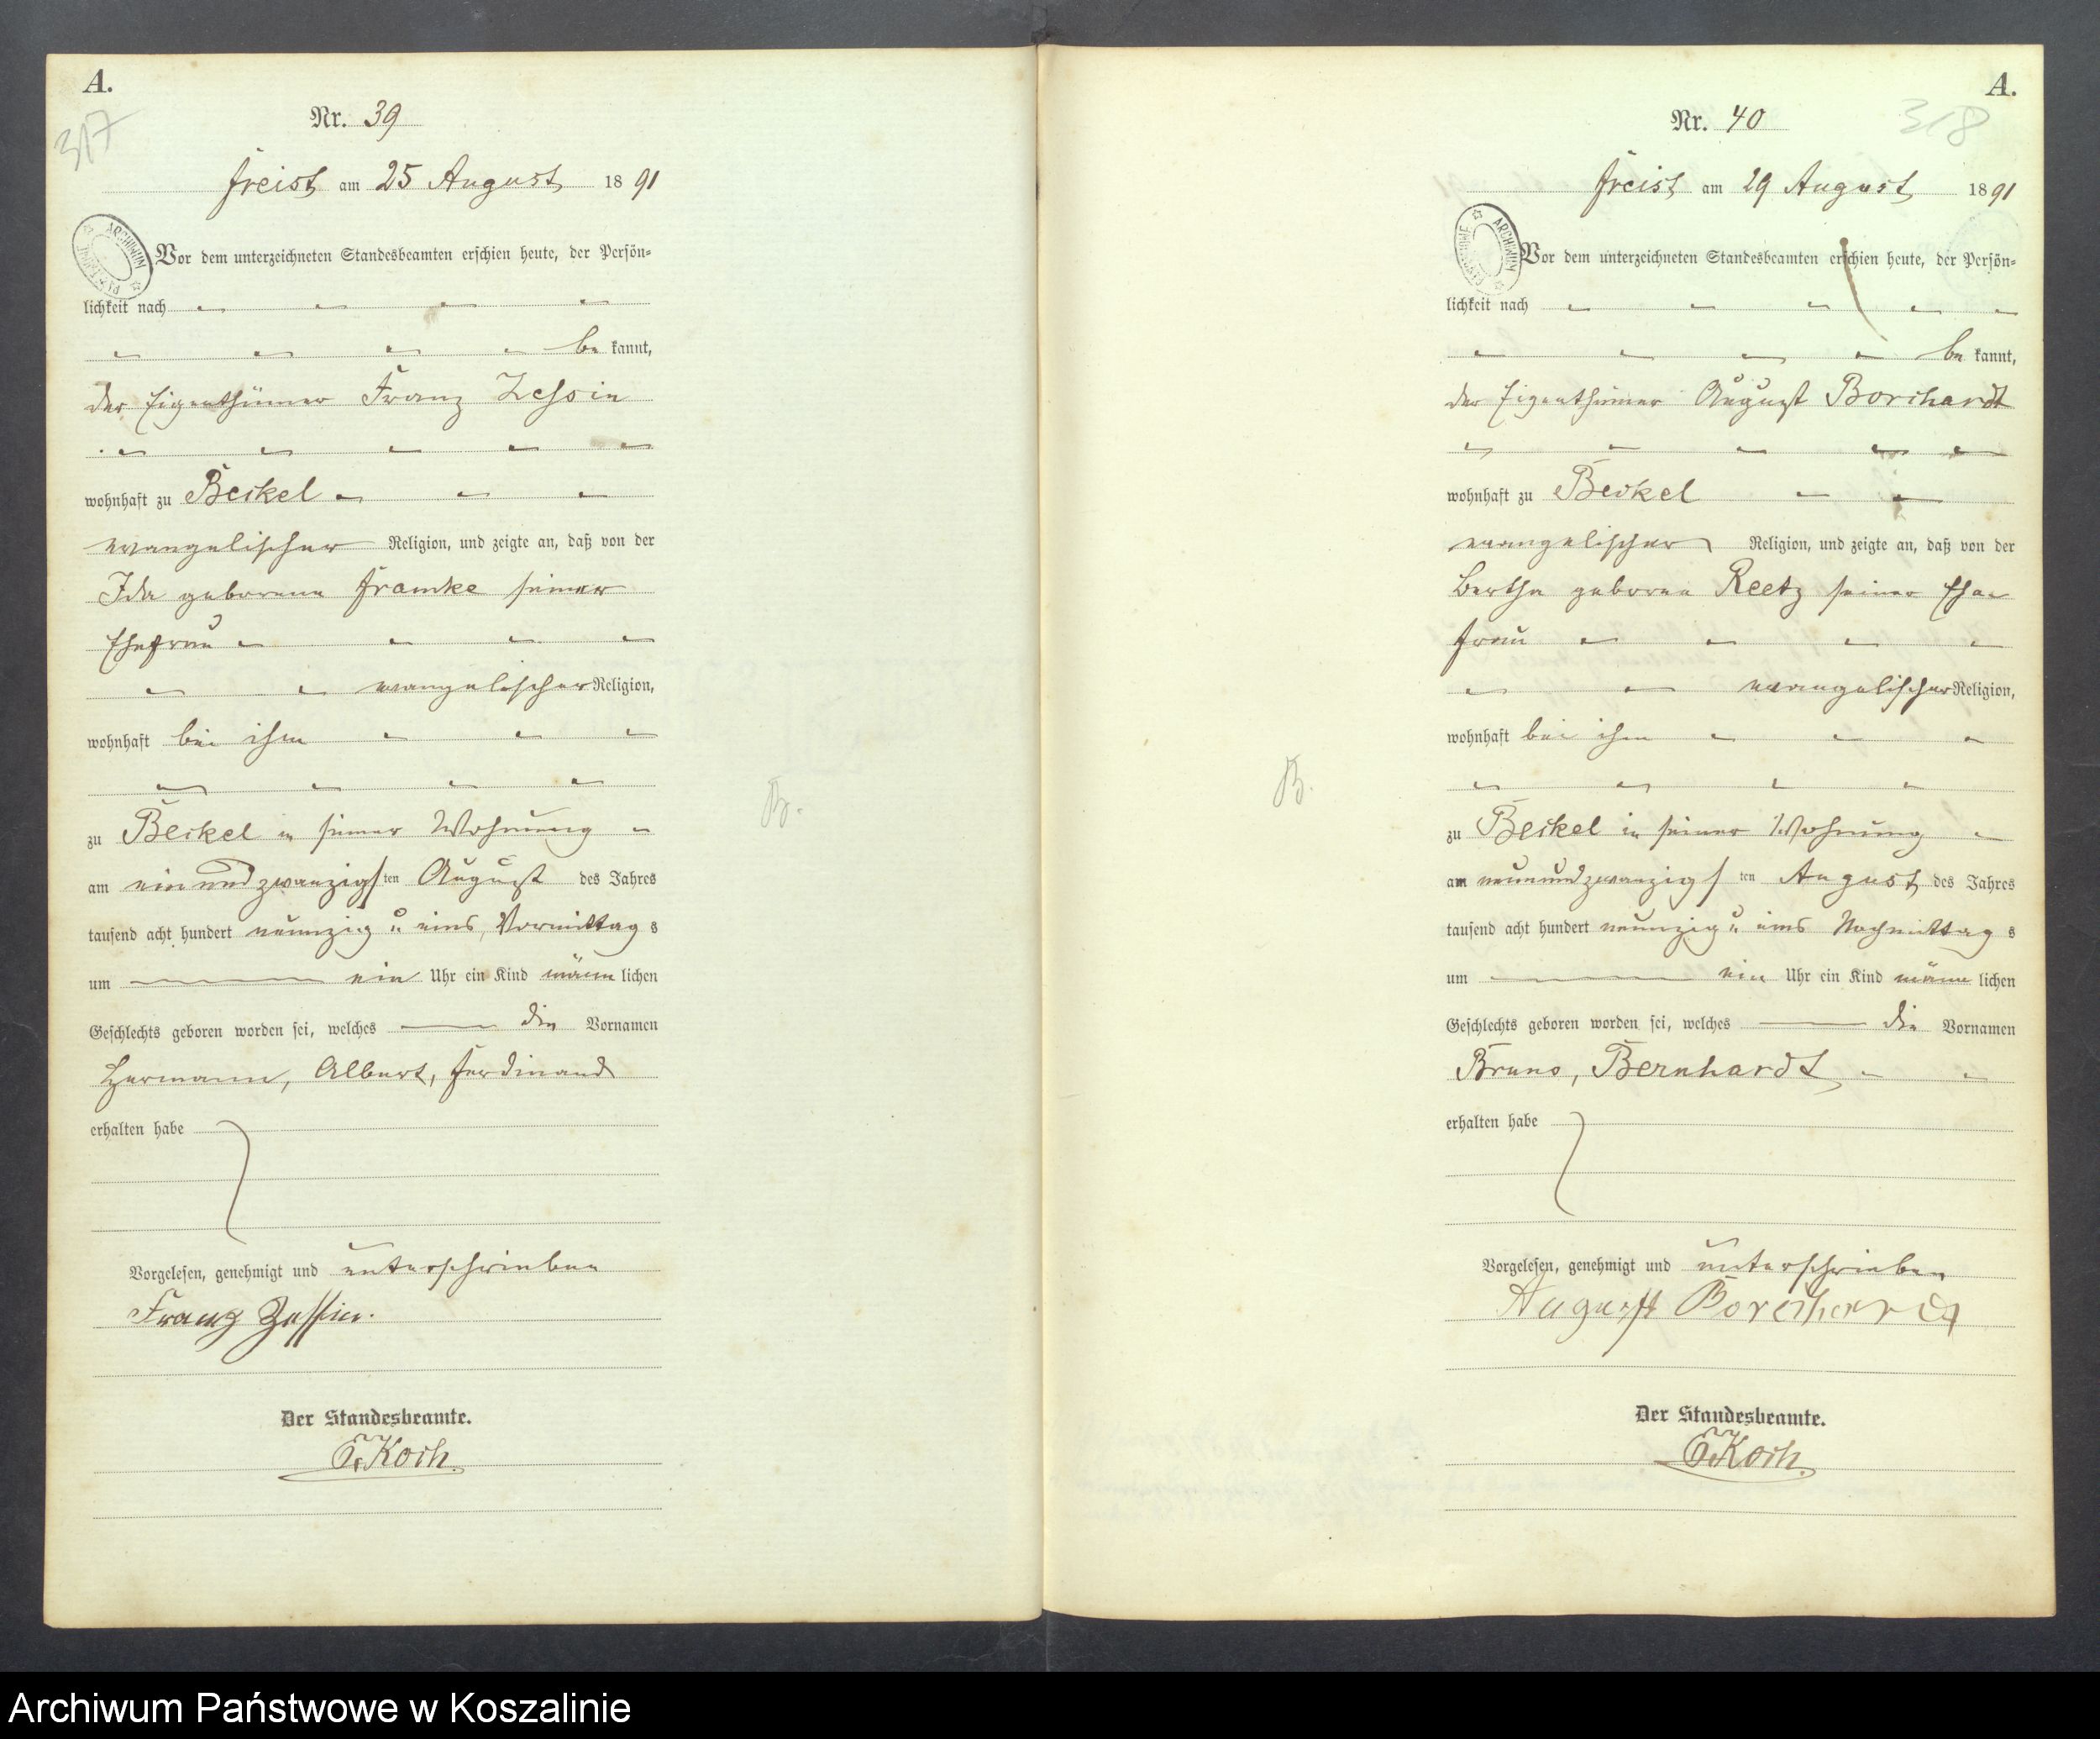 A.
317
Nr. 39
Freist am 25 August 1891
Vor dem unterzeichneten Standesbeamten erschien heute, der Persön-
lichkeit nach
be kannt,
der Eigenthümer Franz Zessin
wohnhaft zu Beckel
evangelischer Religion, und zeigte an, daß von der
Ida geborene Framke seiner
Ehefrau
evangelischer Religion,
wohnhaft bei ihm
zu Beckel in seiner Wohnung
am ein und zwanzigsten August des Jahres
tausend acht hundert neunzig u eins, Vormittags
um ein Uhr ein Kind männlichen
Geschlechts geboren worden sei, welches die Vornamen
Hermann, Albert, Ferdinand
erhalten habe
Vorgelesen, genehmigt und unterschrieben
Franz Zessin.
Der Standesbeamte.
Koch.
B.
A.
318
Nr. 40
Freist am 29 August 1891
ARCHIWUM PAŃSTWOWE
Vor dem unterzeichneten Standesbeamten erschien heute, der Persön-
lichkeit nach
be kannt,
der Eigenthümer August Borchardt
wohnhaft zu Beckel
evangelischer Religion, und zeigte an, daß von der
Bertha geboren Reetz seiner Ehe
frau
evangelischer Religion,
wohnhaft bei ihm
zu Beckel in seiner Wohnung
am neunundzwanzigsten August des Jahres
tausend acht hundert neunzig u eins Nachmittags
um ein Uhr ein Kind männlichen
Geschlechts geboren worden sei, welches die Vornamen
Bruno, Bernhardt
erhalten habe
Vorgelesen, genehmigt und unterschrieben
August Borchardt
Der Standesbeamte.
Koch.
B.
Archiwum Państwowe w Koszalinie